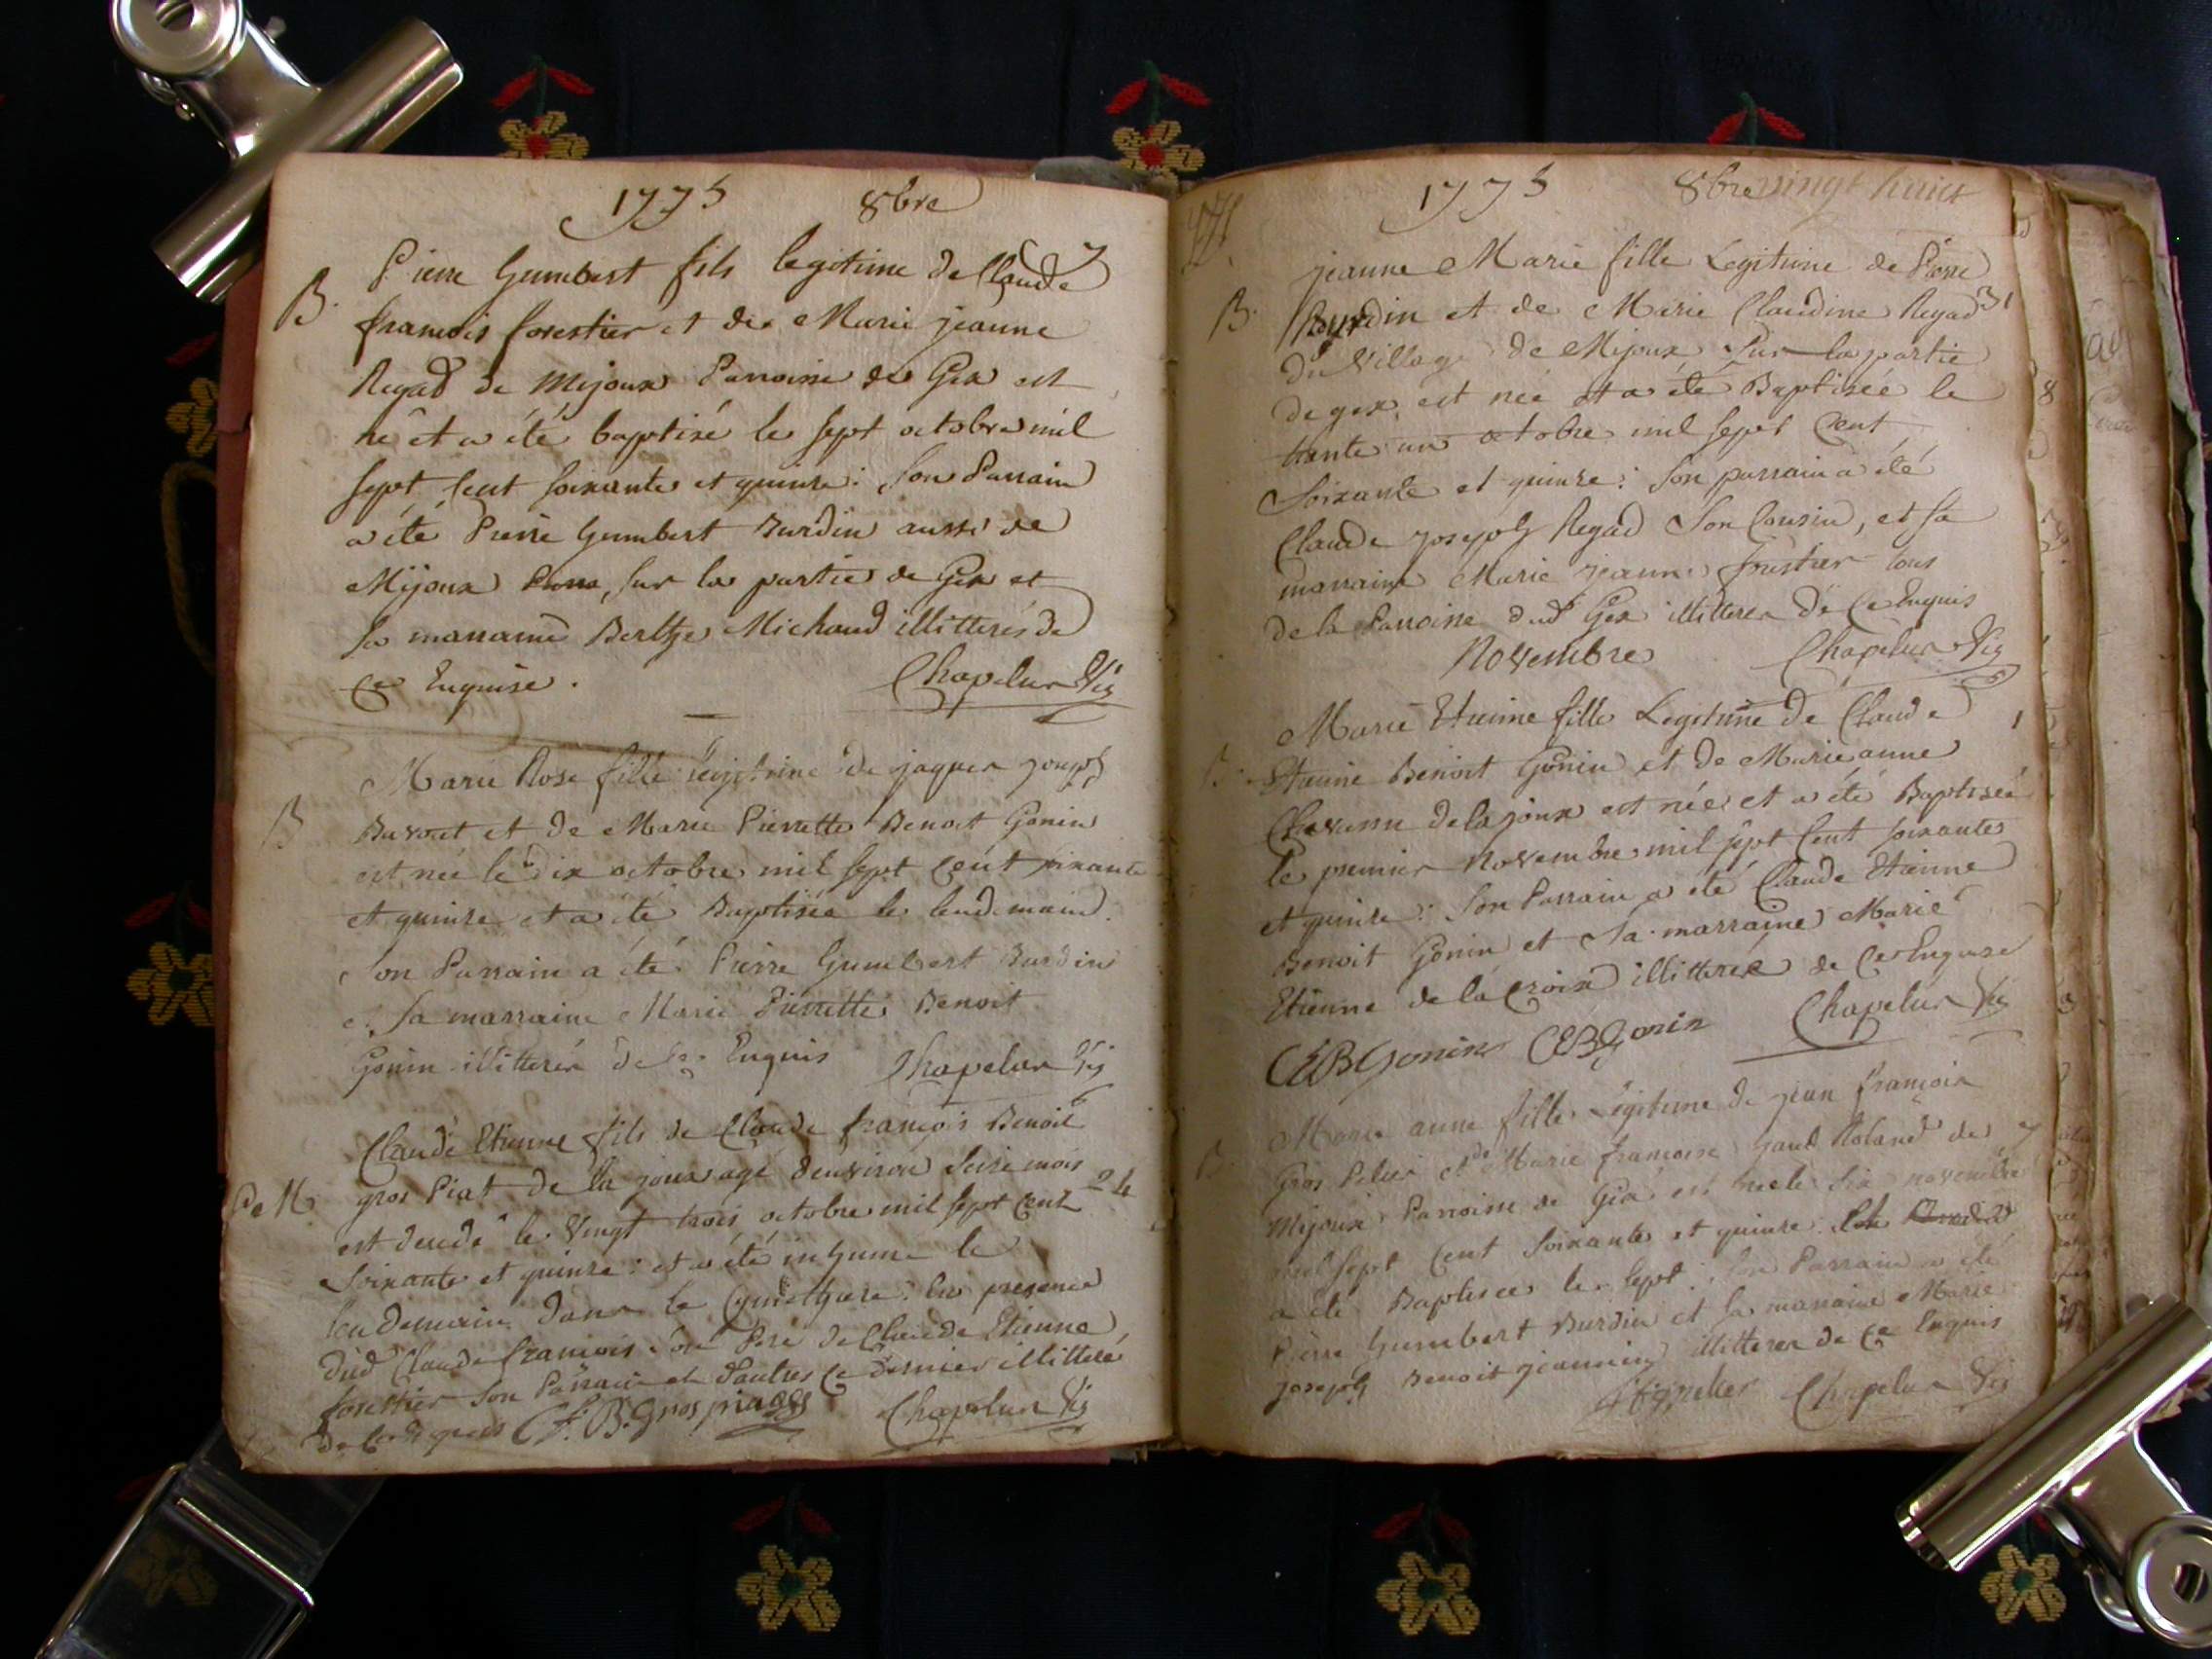 1775 8bre
7
Pierre Gumbert fils legitime de Claude
B. francois forestier et de Marie jeanne
Regad de Mijoux Parroisse de Gex est
né et a été baptisé le sept octobre mil
sept cent soixante et quinze: son Parrain
a été Pierre Gumbert Burdin aussi de
Mijoux, sur la partie de Gex et
sa marraine Berthe Michaud illitterés de
ce Enquise. Chapelu Vic
Marie Rose fille legitime de jaques joseph
B Buvoet et de Marie Pierrette Benoit Gonin
est née le dix octobre mil sept cent soixante
et quinze et a été Baptisée le lendemain.
Son Parrain a été Pierre Gumbert Burdin
et sa marraine Marie Pierrette Benoit
Gonin illitterés de ce Enquis Chapelu Vic
Claude Etienne fils de Claude françois Benoit
gros Piat de la joux agé denviron seize mois 24
est decedé le Vingt trois octobre mil sept cent
Soixante et quinze: et a été inhumé le
lendemain dans le Cymethiere: En presence
dud Claude francois son Pere de Claude Etienne
forestier son Parrain et d'autres ce dernier illitteré
de ce Enquis C.f.B. Grospiaz Chapelu Vic
1775 8bre vingt huict
jeanne Marie fille Legitime de Pierre
B. Burdin et de Marie Claudine Regad 31
du Village de Mijoux Sur la partie
de gex, est née et a été Baptisée le
trente un octobre mil sept Cent
Soixante et quinze: son parrain a été
Claude joseph Regad Son Cousin, et sa
marraine Marie jeanne foustier tous
de la Parroisse dud Gex illitteres de Ce Enquis
Novembre Chapelu Vic
Marie Etienne fille Legitime de Claude 1
B. Etienne Benoit Gonin et de Marie anne
de la joux est née et a été Baptisée
le premier Novembre mil sept Cent soixante
et quinze: son Parrain a été Claude Etienne
Benoit Gonin et Sa marraine Marie
Etienne de la Croix illitteré de Ce Enquise
CEBGonin CEBGonin Chapelu Vic
Marie anne fille Legitime de jean françois
B. Gros Pelier et de Marie francoise Roland de 7
Mijoux Parroisse de Gex est née le six novembre
mil sept Cent Soixante et quinze
a été Baptisée le sept: son Parrain a été
Pierre Gumbert Burdin et sa marraine Marie
joseph Benoit jeannin illitteres de ce Enquis
Chapelu Vic